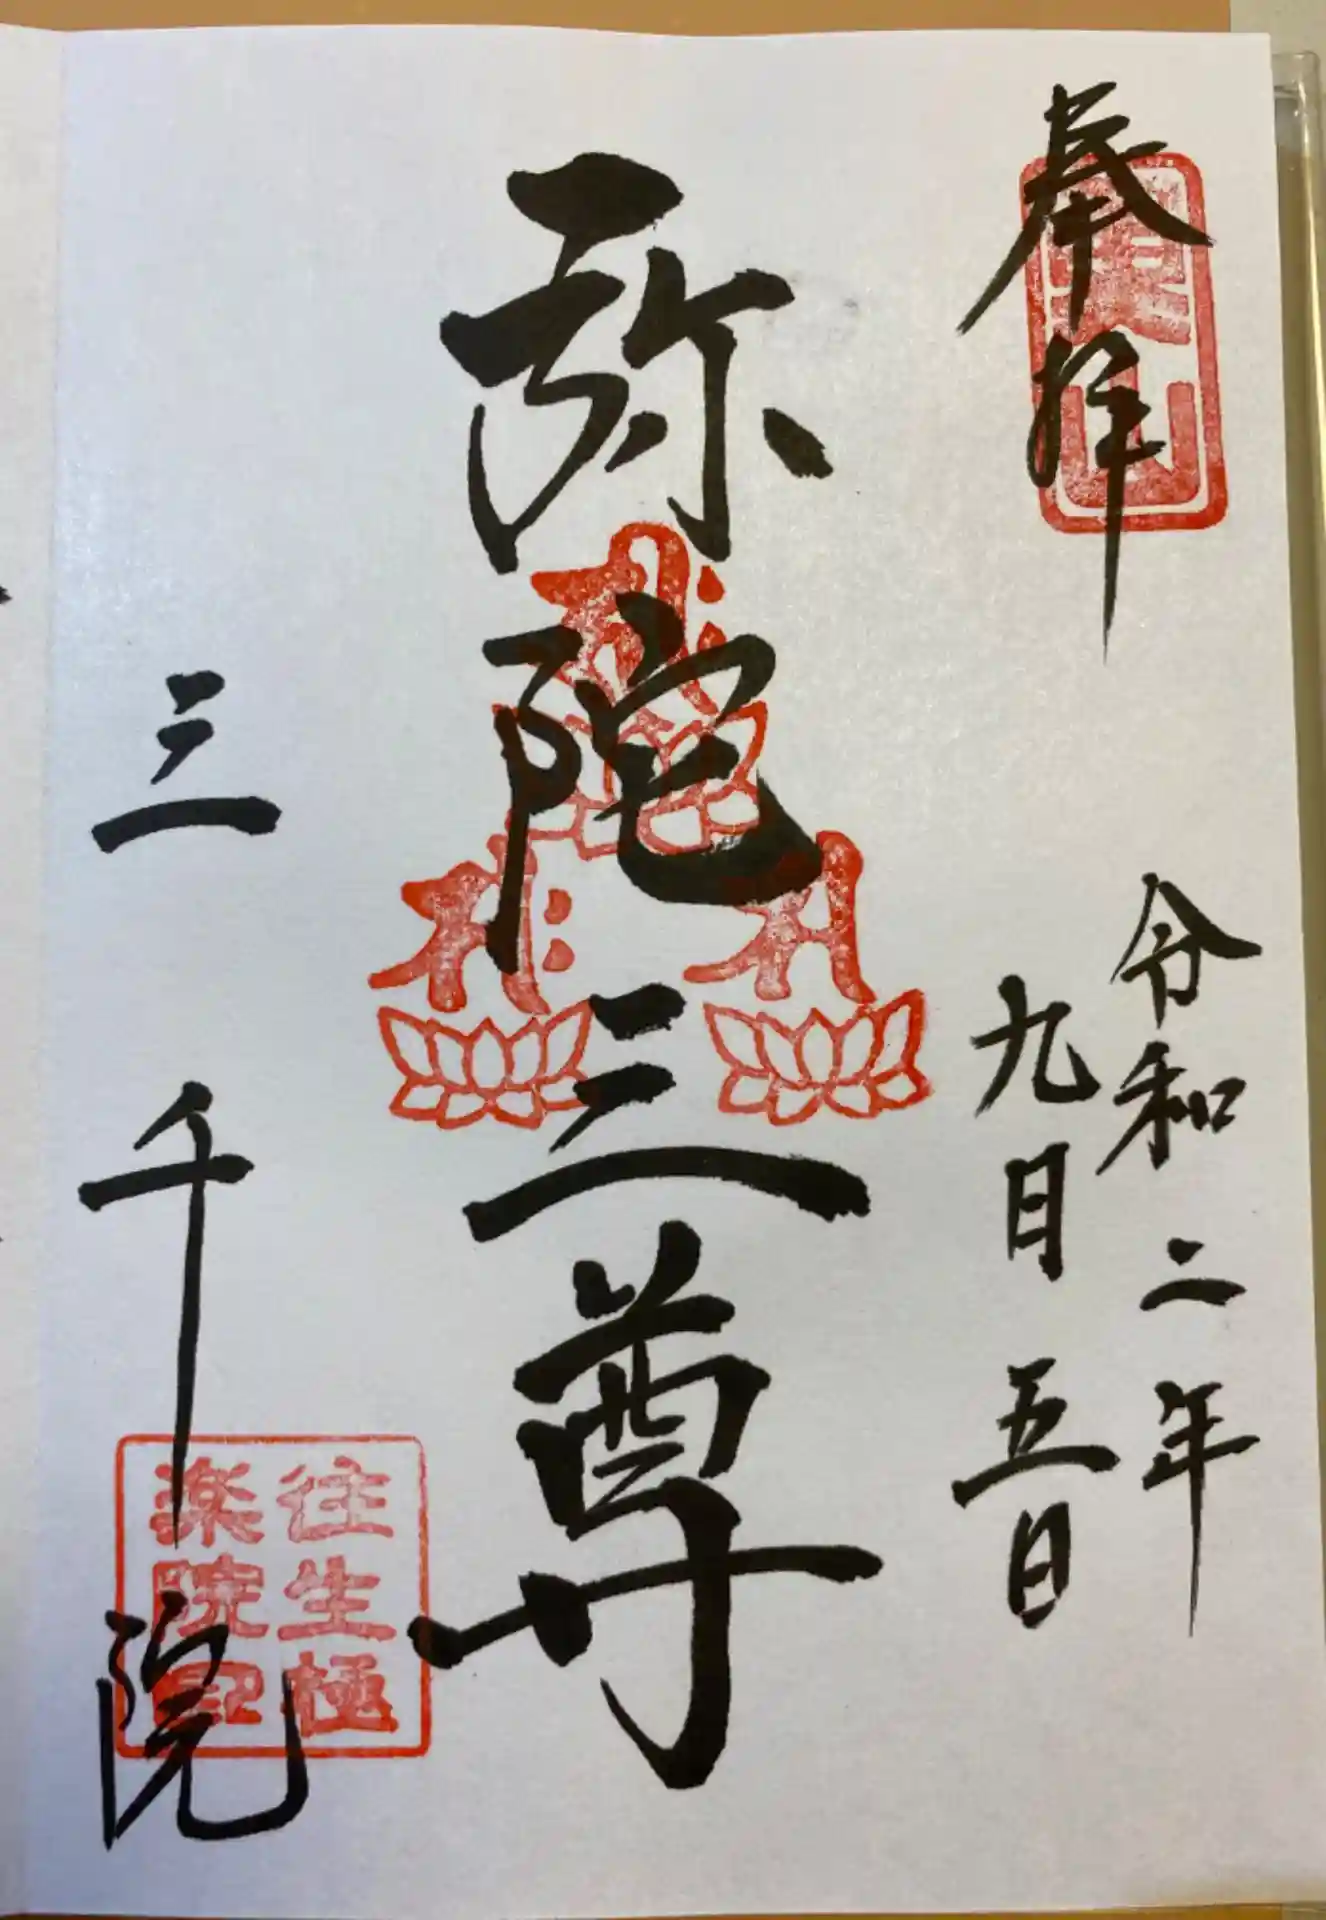 奉拝
令和二年
九日五日
弥陀三尊
三千院
往生極
楽院印